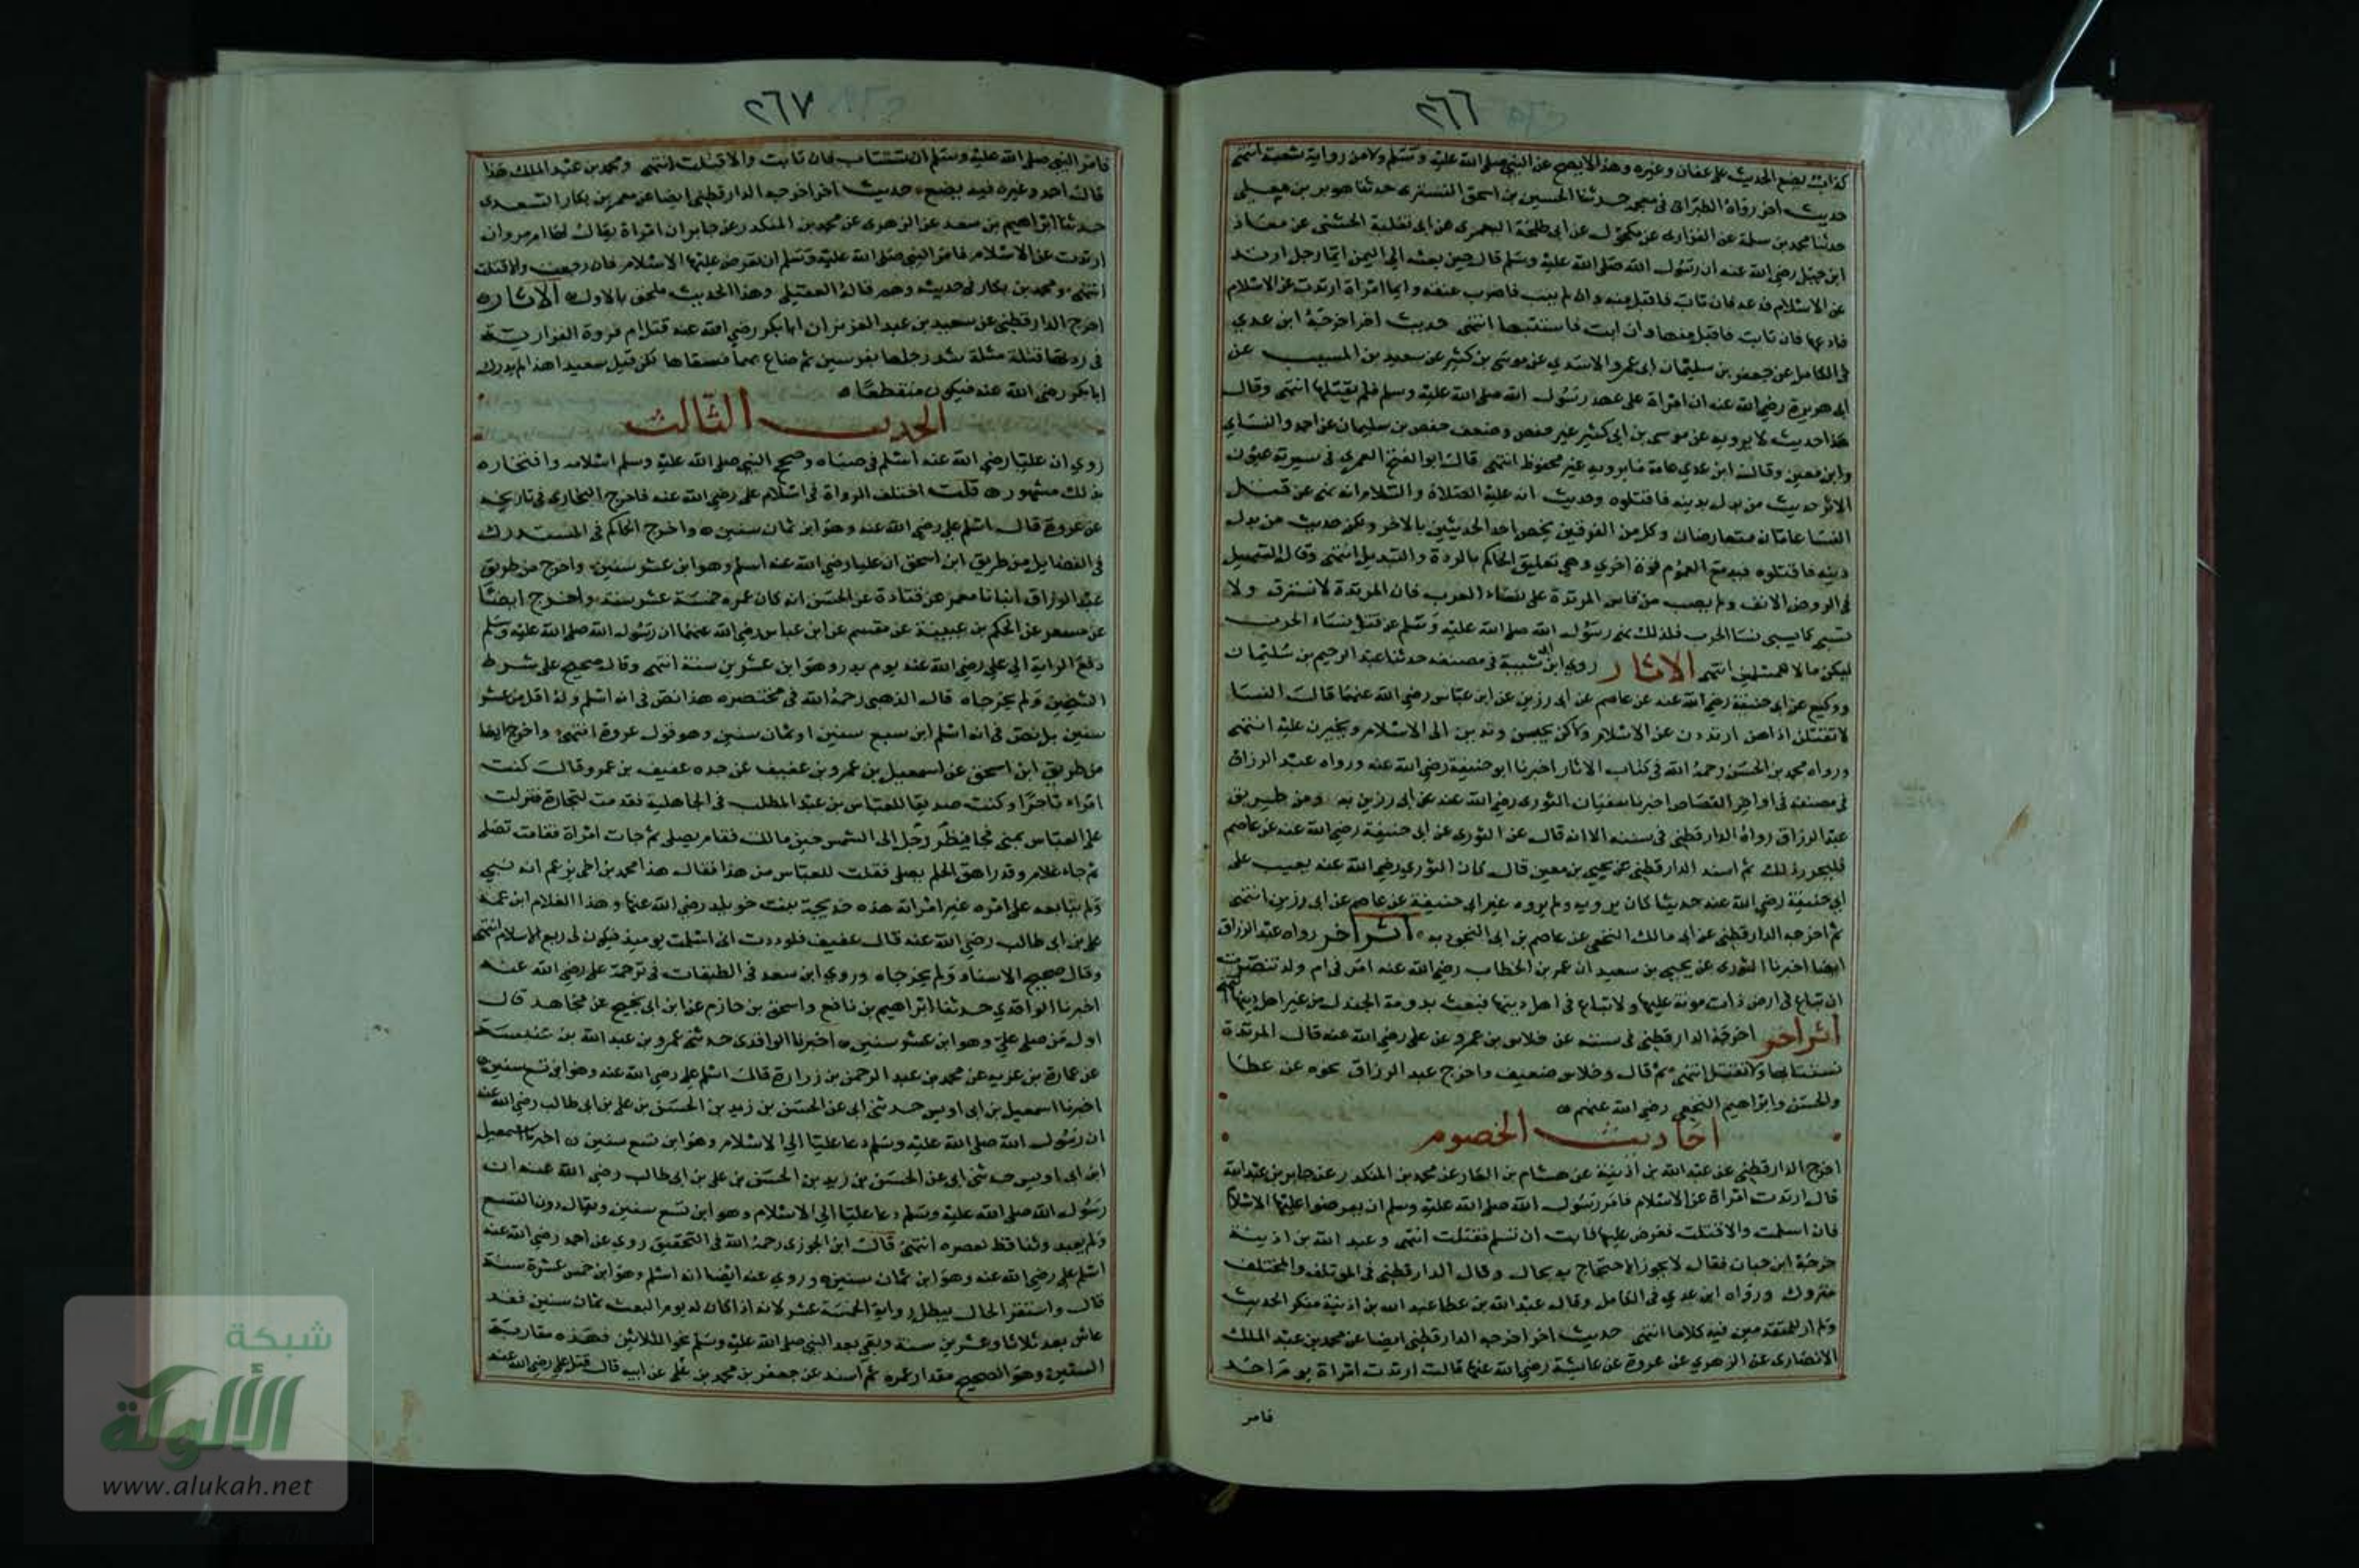 ٢٦٦
كذاب يضع الحديث على عفان وغيره وهذا لا يصح عن النبي صلى الله عليه وسلم ولا من رواية شعبة انتهى
حديث اخر رواه الطبراني في معجمه حدثنا الحسين بن اسحق التستري حدثنا هوبر بن معلى
حدثنا محمد بن سلمة عن الفزاري عن مكحول عن ابن طلحة اليعمري عن ابي ثعلبة الخشني عن معاذ
ابن جبل رضي الله عنه ان رسول الله صلى الله عليه وسلم قال حين بعثه الى اليمن ايما رجل ارتد
عن الاسلام فادعه فان تاب فاقبل منه وان لم يتب فاضرب عنقه وايما امراة ارتدت عن الاسلام
فادعها فان تابت فاقبل منها وان ابت فاستتبها انتهى حديث اخر اخرجه ابن عدي
في الكامل عن حفص بن سليمان ابي عمرو الاسدي عن موسى بن كثير عن سعيد بن المسيب عن
ابي هريرة رضي الله عنه ان امراة على عهد رسول الله صلى الله عليه وسلم فلم يقتلها انتهى وقال
هذا حديث لا يرويه عن موسى بن ابي كثير غير حفص وضعف حفص بن سليمان عن احمد والنسائي
وابن معين وقال ابن عدي عامة ما يرويه غير محفوظ انتهى قال ابو الفتح العمري في سيرته عيون
الاثر حديث من بدل دينه فاقتلوه وحديث انه عليه الصلاة والسلام انه نهى عن قتل
النسا عامان متعارضان وكل من الفريقين يخص احد الحديثين بالاخر ولكن حديث من بدل
دينه فاقتلوه فيه مع العموم قوة اخرى وهي تعليق الحكم بالردة والتبديل انتهى وقال السهيلي
في الروض الانف ولم يصب من قاس المرتدة على نساء الحرب فان المرتدة لا تسترق ولا
تسبى كما يسبى نسا الحرب فلذلك نهى رسول الله صلى الله عليه وسلم عن قتل نساء الحرب
ليكن مالا للمسلمين انتهى الاثار روى ابن ابي شيبة في مصنفه حدثنا عبد الرحيم بن سليمان
ووكيع عن ابي حنيفة رضي الله عنه عن عاصم عن ابي رزين عن ابن عباس رضي الله عنهما قال النسا
لا تقتلن اذا هن ارتددن عن الاسلام ولكن يحبسن وتدعين الى الاسلام ويجبرن عليه انتهى
ورواه محمد بن الحسن رحمه الله في كتاب الاثار اخبرنا ابو حنيفة رضي الله عنه ورواه عبد الرزاق
في مصنفه في اواخر القصاص اخبرنا سفيان الثوري رضي الله عنه عن ابي رزين به ومن طريق
عبد الرزاق رواه الدارقطني في سننه الا انه قال عن الثوري عن ابي حنيفة رضي الله عنه عن عاصم
فليحرر ذلك ثم اسند الدارقطني عن يحيى بن معين قال كان الثوري رضي الله عنه يعيب على
ابي حنيفة رضي الله عنه حديثا كان يرويه ولم يروه غير ابي حنيفة عن عاصم عن ابي رزين انتهى
ثم اخرجه الدارقطني عن ابي مالك النخعي عن عاصم بن ابي النجود به اثر اخر رواه عبد الرزاق
ايضا اخبرنا الثوري عن يحيى بن سعيد ان عمر بن الخطاب رضي الله عنه امر في ام ولد تنصرت
ان تباع في ارض ذات مونة عليها ولا تباع في اهل دينها فبعث بدومة الجندل من غير اهل دينها انتهى
اثر اخر اخرجه الدارقطني في سننه عن خلاس بن عمرو عن علي رضي الله عنه قال المرتدة
تستتاب ولا تقتل انتهى ثم قال وخلاس ضعيف واخرج عبد الرزاق نحوه عن عطا
والحسن وابراهيم النخعي رضي الله عنهم
احاديث الخصوم
اخرج الدارقطني عن عبد الله بن اذينة عن هشام بن الغاز عن محمد بن المنكدر عن جابر بن عبد الله
قال ارتدت امراة عن الاسلام فامر رسول الله صلى الله عليه وسلم ان يعرضوا عليها الاسلام
فان اسلمت والا قتلت فعرض عليها فابت ان تسلم فقتلت انتهى وعبد الله بن اذينة
جرحه ابن حبان فقال لا يجوز الاحتجاج به بحال وقال الدارقطني في الموتلف والمختلف
متروك ورواه ابن عدي في الكامل وقال عبد الله بن عطا عبد الله بن اذينة منكر الحديث
ولم ار للمتقدمين فيه كلاما انتهى حديث اخر اخرجه الدارقطني ايضا عن محمد بن عبد الملك
الانصاري عن الزهري عن عروة عن عايشة رضي الله عنها قالت ارتدت امراة يوم احد
فامر
٢٦٧
فامر النبي صلى الله عليه وسلم ان تستتاب فان تابت والا قتلت انتهى ومحمد بن عبد الملك هذا
قال احمد وغيره فيه يضع حديث اخر اخرجه الدارقطني ايضا عن معمر بن بكار السعدي
حدثنا ابراهيم بن سعد عن الزهري عن محمد بن المنكدر عن جابر ان امراة يقال لها ام مروان
ارتدت عن الاسلام فامر النبي صلى الله عليه وسلم ان يعرض عليها الاسلام فان رجعت والا قتلت
انتهى ومحمد بن بكار في حديثه وهم قاله العقيلي وهذا الحديث ملحق بالاول الاثار
اخرج الدارقطني عن سعيد بن عبد العزيز ان ابا بكر رضي الله عنه قتل ام قروة الفزارية
في ردتها قتلة مثلة شد رجليها بفرسين ثم صاح بهما فشقاها لكن قيل سعيد هذا لم يدرك
ابا بكر رضي الله عنه فيكون منقطعا
الحديث الثالث
روي ان عليا رضي الله عنه اسلم في صباه وصحح النبي صلى الله عليه وسلم اسلامه وافتخاره
بذلك مشهور قلت اختلف الرواة في اسلام علي رضي الله عنه فاخرج البخاري في تاريخه
عن عروة قال اسلم علي رضي الله عنه وهو ابن ثمان سنين واخرج الحاكم في المستدرك
في الفضايل من طريق ابن اسحق ان عليا رضي الله عنه اسلم وهو ابن عشر سنين واخرج من طريق
عبد الرزاق انبانا معمر عن قتادة عن الحسن انه كان عمره خمسة عشر سنة واخرج ايضا
عن مسعر عن الحكم بن عيينة عن مقسم عن ابن عباس رضي الله عنهما ان رسول الله صلى الله عليه وسلم
دفع الراية الى علي رضي الله عنه يوم بدر وهو ابن عشرين سنة انتهى وقال صحيح على شرط
الشيخين ولم يخرجاه قال الذهبي رحمه الله في مختصره هذا نص في انه اسلم وله اقل من عشر
سنين بل نص في انه اسلم ابن سبع سنين او ثمان سنين وهو قول عروة انتهى واخرج ايضا
من طريق ابن اسحق عن اسمعيل بن عمرو بن عفيف عن جده عفيف بن عمرو قال كنت
امراء تاجرا وكنت صديقا للعباس بن عبد المطلب في الجاهلية فقدمت لتجارة فنزلت
على العباس بمنى فجا فنظر رجل الى الشمس حين مالت فقام يصلي ثم جات امراة فقامت تصلي
ثم جاء غلام وقد راهق الحلم يصلي فقلت للعباس من هذا فقال هذا محمد بن اخي يزعم انه نبي
ولم يتابعه على امره غير امراته هذه خديجة بنت خويلد رضي الله عنها وهذا الغلام ابن عمه
علي بن ابي طالب رضي الله عنه قال عفيف فلوددت اني اسلمت يوميذ فيكون لي ربع الاسلام انتهى
وقال صحيح الاسناد ولم يخرجاه وروى ابن سعد في الطبقات في ترجمة علي رضي الله عنه
اخبرنا الواقدي حدثنا ابراهيم بن نافع واسحق بن حازم عن ابن ابي نجيح عن مجاهد قال
اول من صلى علي وهو ابن عشر سنين اخبرنا الواقدي حدثني عمرو بن عبد الله بن عنبسة
عن عمارة بن غزية عن محمد بن عبد الرحمن بن زرارة قال اسلم علي رضي الله عنه وهو ابن تسع سنين
اخبرنا اسمعيل بن ابي اويس حدثني ابي عن الحسن بن زيد بن الحسن بن علي بن ابي طالب رضي الله عنه
ان رسول الله صلى الله عليه وسلم دعا عليا الى الاسلام وهو ابن تسع سنين اخبرنا اسمعيل
ابن ابي اويس حدثني ابي عن الحسن بن زيد بن الحسن بن علي بن ابي طالب رضي الله عنه ان
رسول الله صلى الله عليه وسلم دعا عليا الى الاسلام وهو ابن تسع سنين ويقال دون التسع
ولم يعبد وثنا قط لصغره انتهى قال ابن الجوزي رحمه الله في التحقيق روي عن احمد رضي الله عنه
اسلم علي رضي الله عنه وهو ابن ثمان سنين وروي عنه ايضا انه اسلم وهو ابن خمس عشرة سنة
قال واستقر الحال يبطل رواية الخمسة عشر لانه اذا كان له يوم البعث ثمان سنين فقد
عاش بعد ثلاثا وعشرين سنة وبقي بعد النبي صلى الله عليه وسلم نحو الثلاثين فهذه مقاربة
الستين وهو الصحيح مقدار عمره ثم اسند عن جعفر بن محمد بن علي عن ابيه قال قتل علي رضي الله عنه
شبكة
الألوكة
www.alukah.net